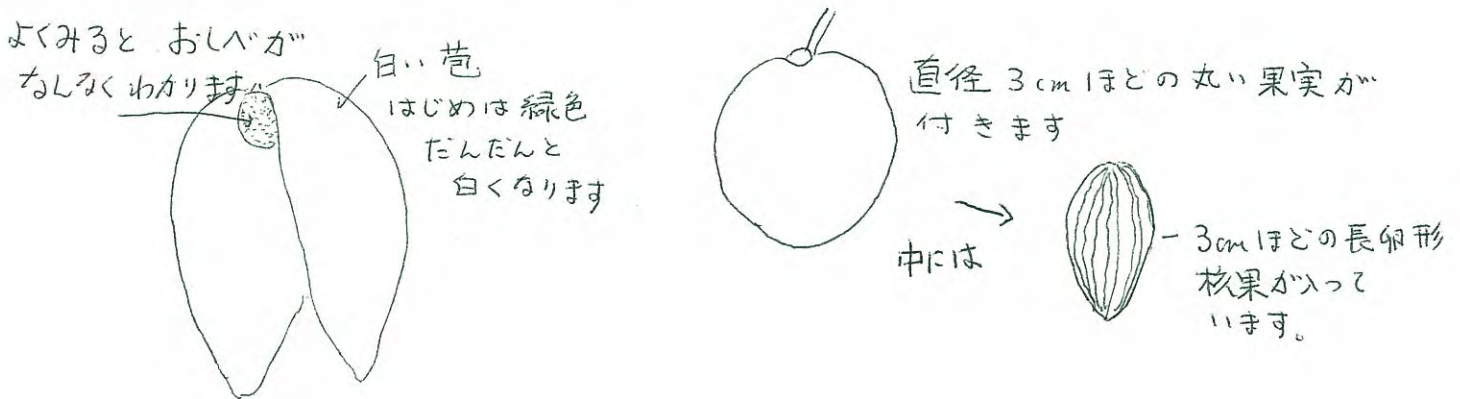 よくみると おしべが
なんなく わかります
白い苞
はじめは緑色
だんだんと
白くなります
直径 3cm ほどの丸い果実が
付きます
中には
3cm ほどの長卵形
核果が入って
います。